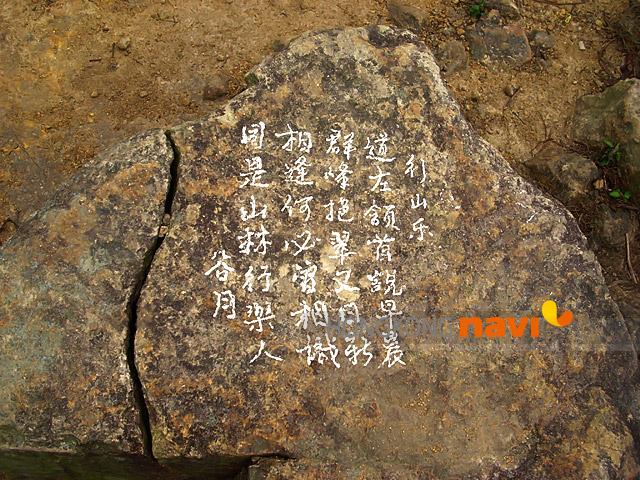 行山乐
道左頷首說早晨
群峰挹翠又日新
相逢何必曾相識
同是山林行樂人
谷月
HONG KONG navi